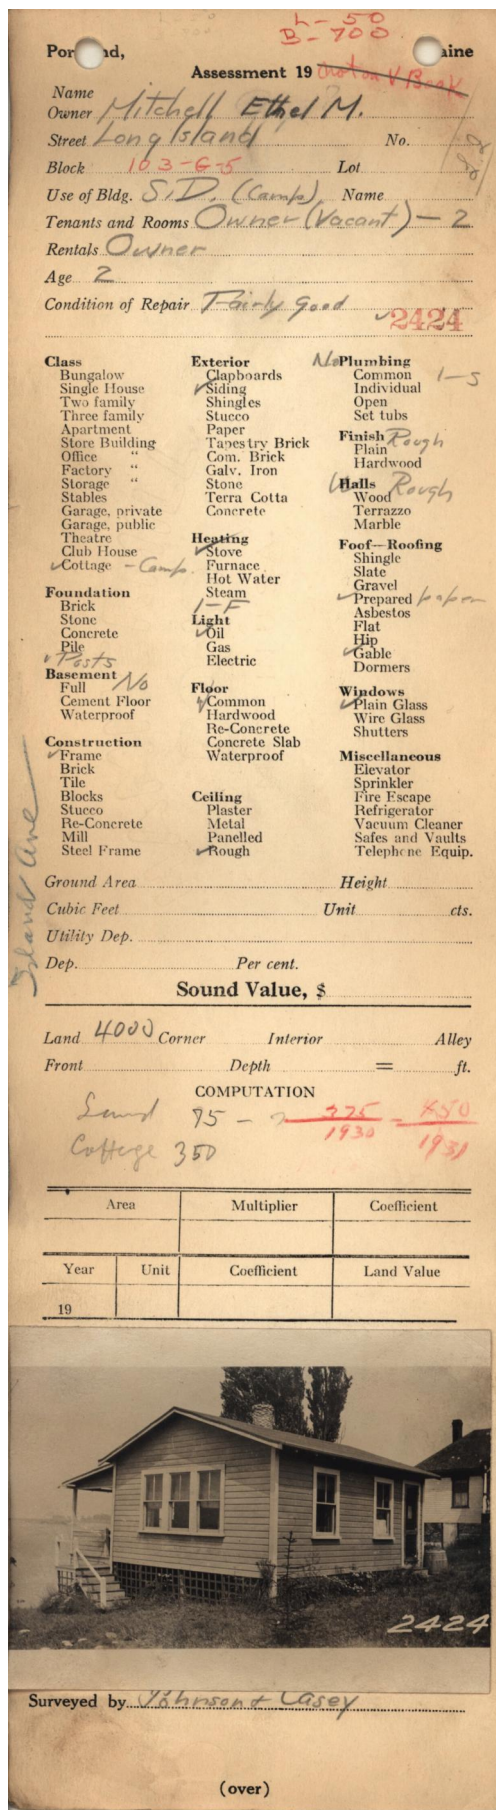 L - 50
B - 700
Portland, Maine
Assessment 19
Name
Owner Mitchell Ethel M.
Street Long Island No.
Block 103-G-5 Lot
Use of Bldg. S.D. (Camp) Name
Tenants and Rooms Owner (Vacant) - 2
Rentals Owner
Age 2
Condition of Repair Fairly Good
✓2424
Class
Bungalow
Single House
Two family
Three family
Apartment
Store Building
Office "
Factory "
Storage "
Stables
Garage, private
Garage, public
Theatre
Club House
✓Cottage - Camp.
Foundation
Brick
Stone
Concrete
Pile
✓Posts
Basement
Full No
Cement Floor
Waterproof
Construction
✓Frame
Brick
Tile
Blocks
Stucco
Re-Concrete
Mill
Steel Frame
Exterior
Clapboards
✓Siding
Shingles
Stucco
Paper
Tapestry Brick
Com. Brick
Galv. Iron
Stone
Terra Cotta
Concrete
Heating
✓Stove
Furnace
Hot Water
Steam
1-F
Light
✓Oil
Gas
Electric
Floor
✓Common
Hardwood
Re-Concrete
Concrete Slab
Waterproof
Ceiling
Plaster
Metal
Panelled
✓Rough
No Plumbing
Common 1-S
Individual
Open
Set tubs
Finish Rough
Plain
Hardwood
Halls
Wood Rough
Terrazzo
Marble
Foof—Roofing
Shingle
Slate
Gravel
✓Prepared paper
Asbestos
Flat
Hip
✓Gable
Dormers
Windows
✓Plain Glass
Wire Glass
Shutters
Miscellaneous
Elevator
Sprinkler
Fire Escape
Refrigerator
Vacuum Cleaner
Safes and Vaults
Telephone Equip.
Island Ave
Ground Area Height
Cubic Feet Unit cts.
Utility Dep.
Dep. Per cent.
Sound Value, $
Land 4000 Corner Interior Alley
Front Depth = ft.
COMPUTATION
Land 75 -
375
1930
1931
Cottage 350
Area Multiplier Coefficient
Year Unit Coefficient Land Value
19
2424
Surveyed by Johnson & Casey
(over)